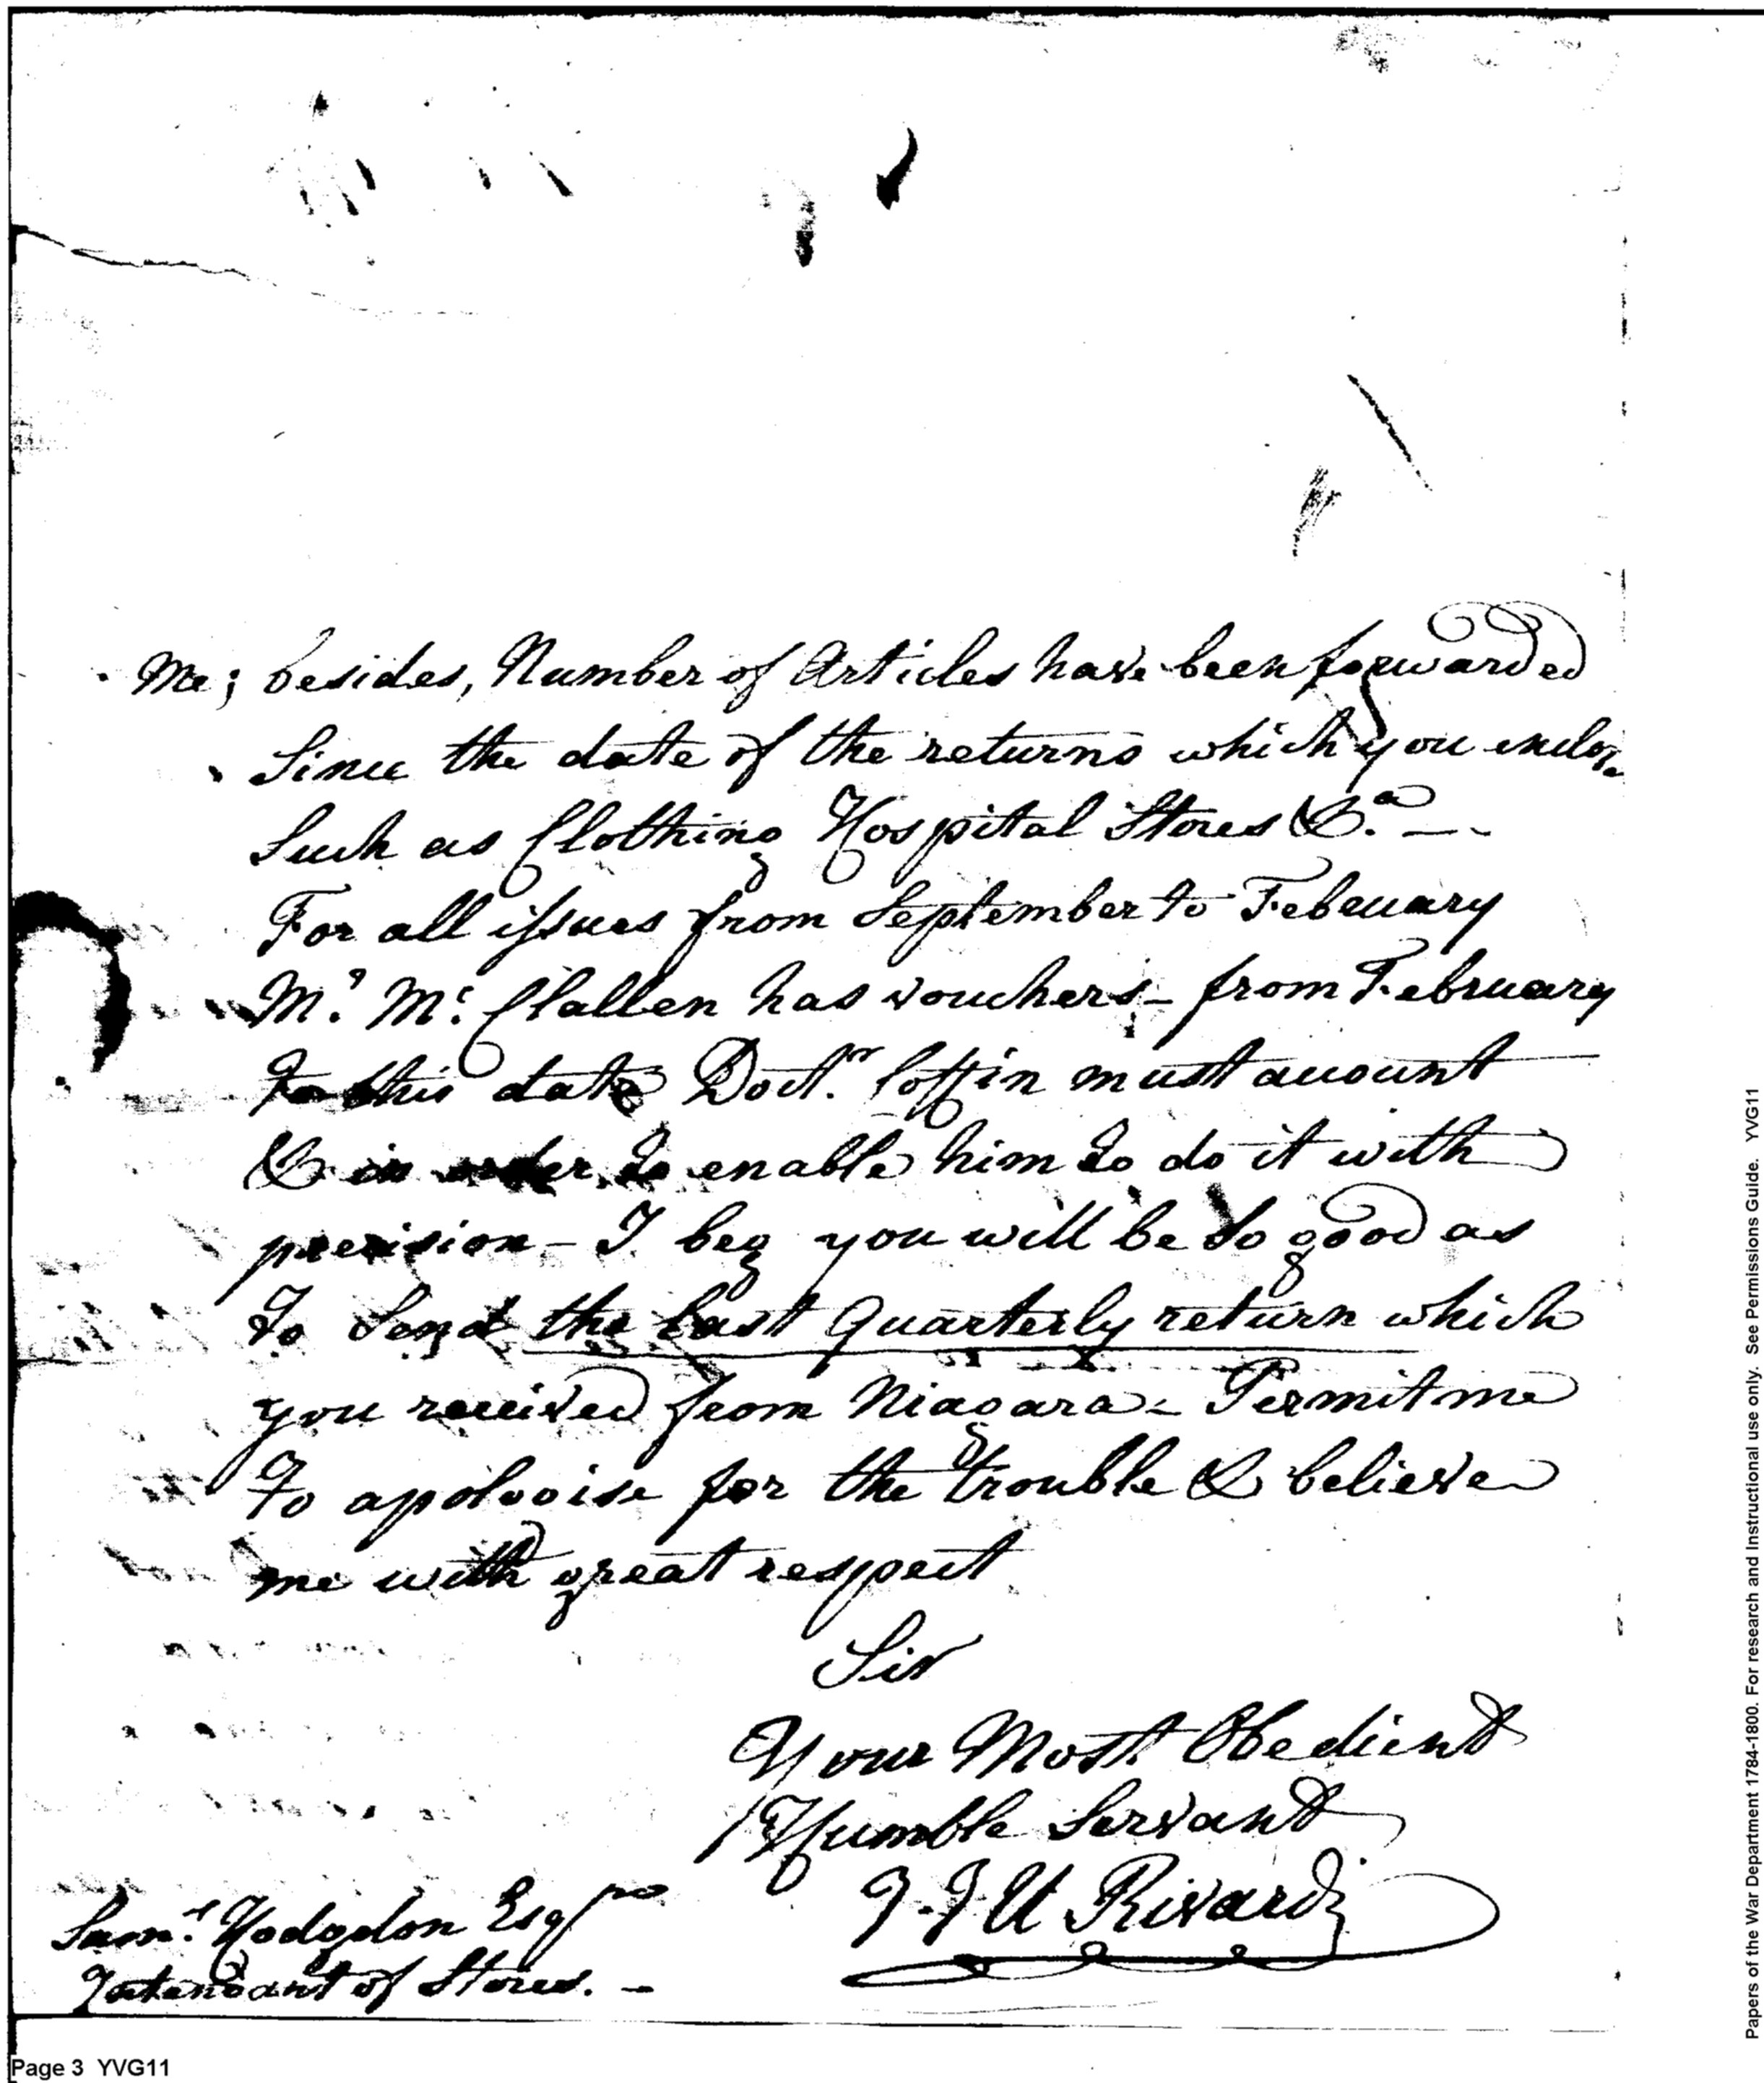 me; besides, Number of Articles have been forwarded
Since the date of the returns which you enclose
Such as Clothing Hospital Stores &.a —
For all issues from September to February
M.r M.c Clallen has vouchers – from February
To this date Doct.r Coffin must account
& in order to enable him to do it with
precision – I beg you will be so good as
To Send the last Quarterly return which
you received from Niagara – Permit me
To apologise for the trouble & believe
me with great respect
Sir
Your Most Obedient
Humble Servant
J. J U Rivardi
Sam.l Hodgdon Esq.re
Intendant of Stores. –
Page 3 YVG11
Papers of the War Department 1784-1800. For research and Instructional use only. See Permissions Guide. YVG11